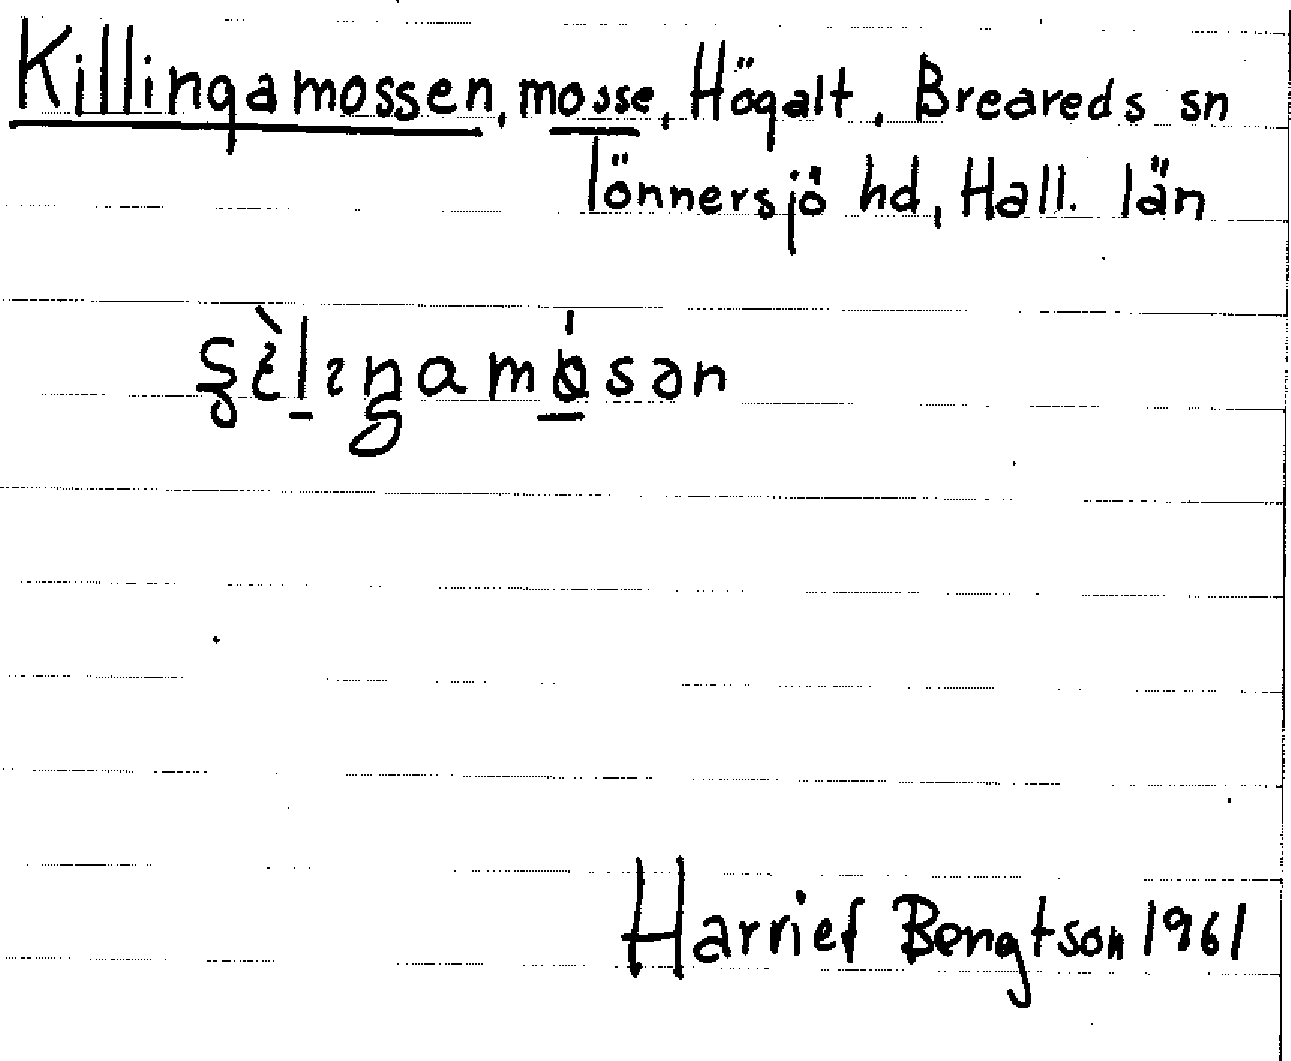 Killingamossen, mosse, Högalt, Breareds sn
Tönnersjö hd, Hall. län
Harriet Bengtson 1961